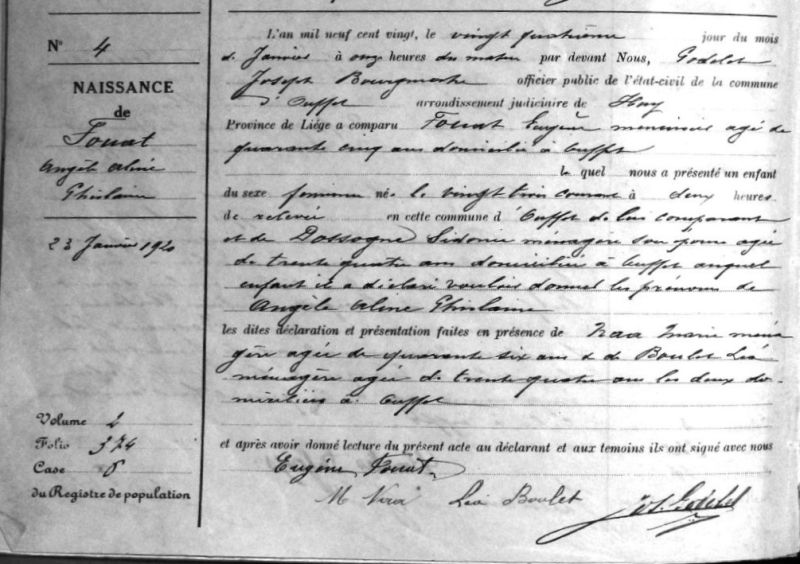 N° 4
NAISSANCE
de
Fouat
Angèle Aline
Ghislaine
23 Janvier 1920
Volume 2
Folio 374
Case 8
du Registre de population
L'an mil neuf cent vingt, le vingt quatrième jour du mois
de Janvier à onze heures du matin par devant Nous, Godelet
Joseph Bourgmestre officier public de l'état-civil de la commune
d'Ouffet arrondissement judiciaire de Huy
Province de Liége a comparu Fouat Eugène menuisier agé de
quarante cinq ans domicilié à Ouffet
le quel nous a présenté un enfant
du sexe féminin né le vingt trois courant à deux heures
de relevée en cette commune d'Ouffet de lui comparant
et de Dossogne Sidonie ménagère son épouse agée
de trente quatre ans domiciliée à Ouffet auquel
enfant il a déclaré vouloir donner les prénoms de
Angèle Aline Ghislaine
les dites déclaration et présentation faites en présence de Marie ména
gère agée de quarante six ans & de Boulet Léa
ménagère agée de trente quatre ans les deux do-
miciliées à Ouffet
et après avoir donné lecture du présent acte au déclarant et aux temoins ils ont signé avec nous
Eugène Fouat
M Léa Boulet Jos. Godelet